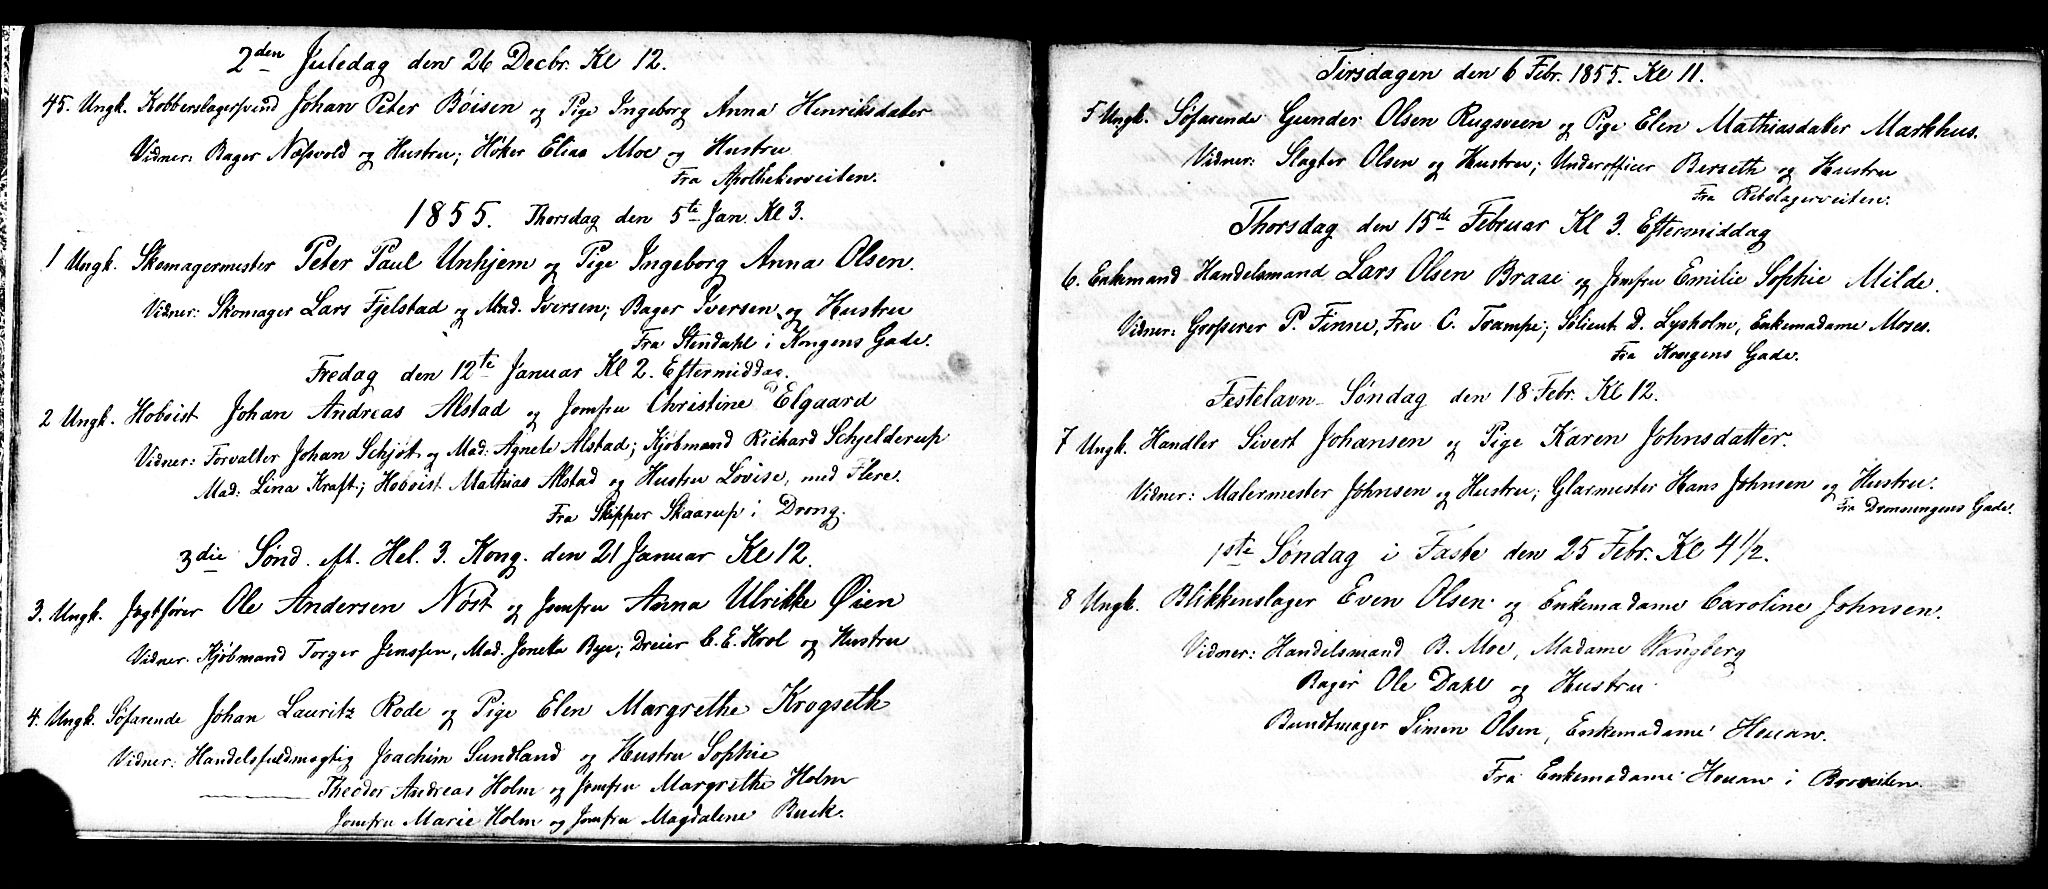 2den Juledag den 26 Decbr. Kl 12.
45. Ungk. Kobberslagersvend Johan Peter Bøisen og Pige Ingeborg Anna Henriksdatter
Vidner: Bager Næsvold og Hustru; Høker Elias Moe og Hustru
Fra Apothekerveiten.
1855. Thorsdag den 5te Jan. Kl 3.
1 Ungk. Skomagermester Peter Paul Unhjem og Pige Ingeborg Anna Olsen.
Vidner: Skomager Lars Fjelstad og Mad. Iversen; Bager Iversen og Hustru
Fra Stendahl i Kongens Gade.
Fredag den 12te Januar Kl 2. Eftermiddag.
2 Ungk. Hoboist Johan Andreas Alstad og Jomfru Christine Elgaard
Vidner: Forvalter Johan Schjøt, og Mad: Agnete Alstad; Kjøbmand Richard Schjelderup
Mad: Lina Kraft; Hoboist Mathias Alstad og Hustru Lovise, med Flere.
Fra Skipper Skaarup i Drong.
3die Sønd. eft. Hel. 3. Kong. den 21 Januar Kl 12.
3. Ungk. Jagtfører Ole Andersen Nøst og Jomfru Anna Ulrikke Øien
Vidner. Kjøbmand Torger Jenssen, Mad. Joneta Bye; Dreier C. E. Krol og Hustru
4. Ungk. Søfarende Johan Lauritz Rode og Pige Elen Margrethe Krogseth
Vidner: Handelsfuldmægtig Joachim Sundland og Hustru Sophie
Theodor Andreas Holm og Jomfru Margrethe Holm
Jomfru Marie Holm og Jomfru Magdalene Buck.
Tirsdagen den 6 Febr. 1855. Kl 11.
5 Ungk. Søfarende Gunder Olsen Rugsveen og Pige Elen Mathiasdatter Markhus.
Vidner: Slagter Olsen og Hustru; Underofficer Berseth og Hustru
Fra Rebslagerveiten.
Thorsdag den 15de Februar Kl 3. Eftermiddag
6. Enkemand Handelsmand Lars Olsen Braae og Jomfru Emilie Sophie Milde.
Vidner: Grosserer P. Finne, Fru C. Trampe; Sølieut. D. Lysholm, Enkemadame Moses.
Fra Kongens Gade.
Festelavn Søndag den 18 Febr. Kl 12.
7 Ungk. Handler Sivert Johansen og Pige Karen Johnsdatter.
Vidner: Malermester Johnsen og Hustru; Glarmester Hans Johnsen og Hustru.
Fra Dronningens Gade.
1ste Søndag i Faste den 25 Febr. Kl 4 1/2.
8 Ungk. Blikkenslager Even Olsen og Enkemadame Caroline Johnsen.
Vidner: Handelsmand B. Moe, Madame Wangberg
Bager Ole Dahl og Hustru
Bundtmager Simon Olsen, Enkemadame Houan.
Fra Enkemadame Houan i Borveiten.